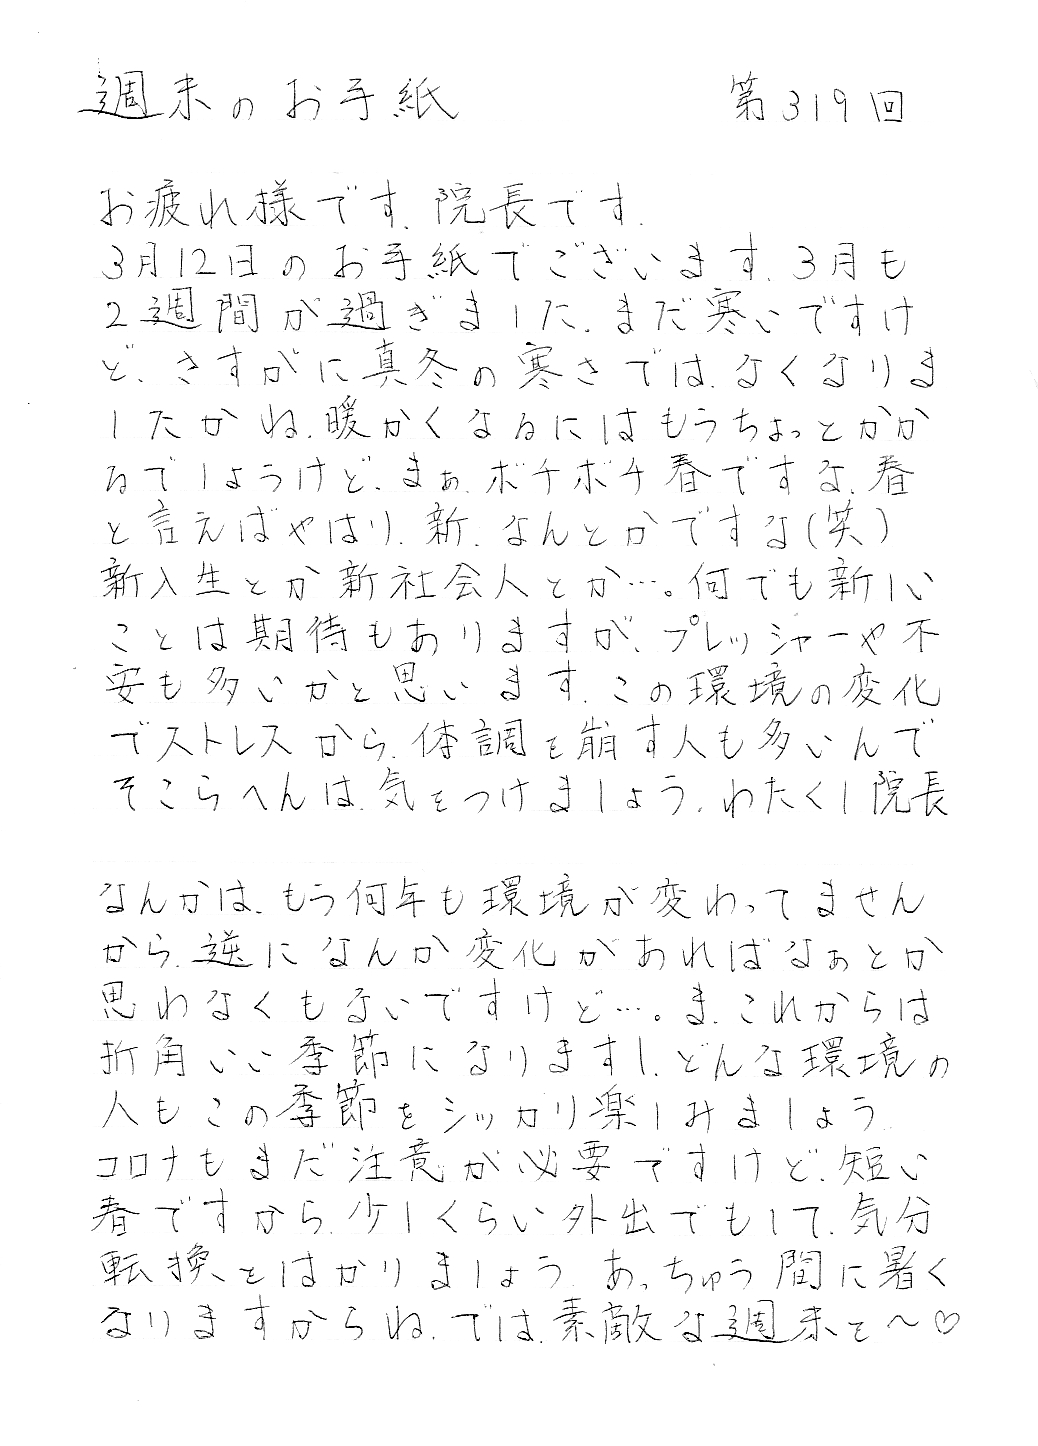 週末のお手紙 第319回
お疲れ様です、院長です。
3月12日のお手紙でございます、3月も
2週間が過ぎました、まだ寒いですけ
ど、さすがに真冬の寒さでは、なくなりま
したかね、暖かくなるにはもうちょっとかか
るでしょうけど、まぁ、ボチボチ春ですな、春
と言えばやはり、新、なんとかですな(笑)
新入生とか新社会人とか…。何でも新しい
ことは期待もありますが、プレッシャーや不
安も多いかと思います、この環境の変化
でストレスから、体調を崩す人も多いんで
そこらへんは、気をつけましょう、わたくし院長
なんかは、もう何年も環境が変わってません
から、逆になんか変化があればなぁとか
思わなくもないですけど…。ま、これからは
折角いい季節になりますし、どんな環境の
人もこの季節をシッカリ楽しみましょう、
コロナもまだ注意が必要ですけど、短い
春ですから、少しくらい外出でもして、気分
転換をはかりましょう、あっちゅう間に暑く
なりますからね、では、素敵な週末を〜♡